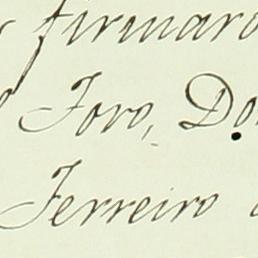 firmaro
Foro, Do
Ferreiro